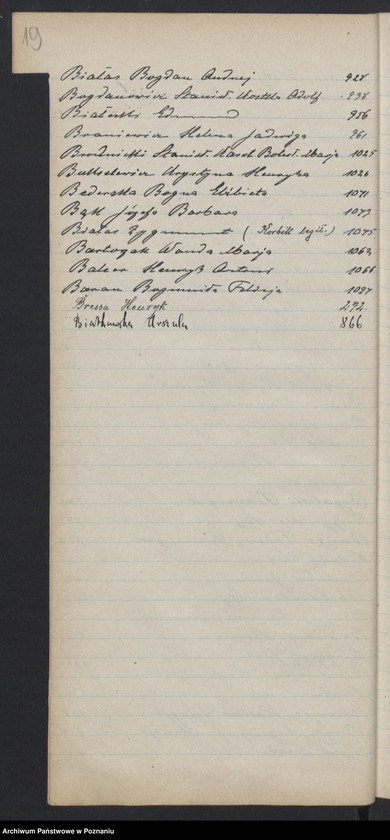 19
Białas Bogdan Andrzej 928
Bogdanowicz Stanisł. Kostka Adolf 938
Białecki Edmund 956
Braniewicz Helena Jadwiga 961
Brudnicki Stanisł. Karol Bolesł. Marja 1025
Butkiewicz Krystyna Henryka 1026
Bederska Bogna Elżbieta 1071
Bąk Józefa Barbara 1073
Białas Zygmunt ( Korbik legit. ) 1075
Bartkowiak Wanda Marja 1062
Balcer Henryk Antoni 1068
Baran Bogumiła Felicja 1097
Bressa Henryk 272.
Białkowska Urszula 866
Archiwum Państwowe w Poznaniu